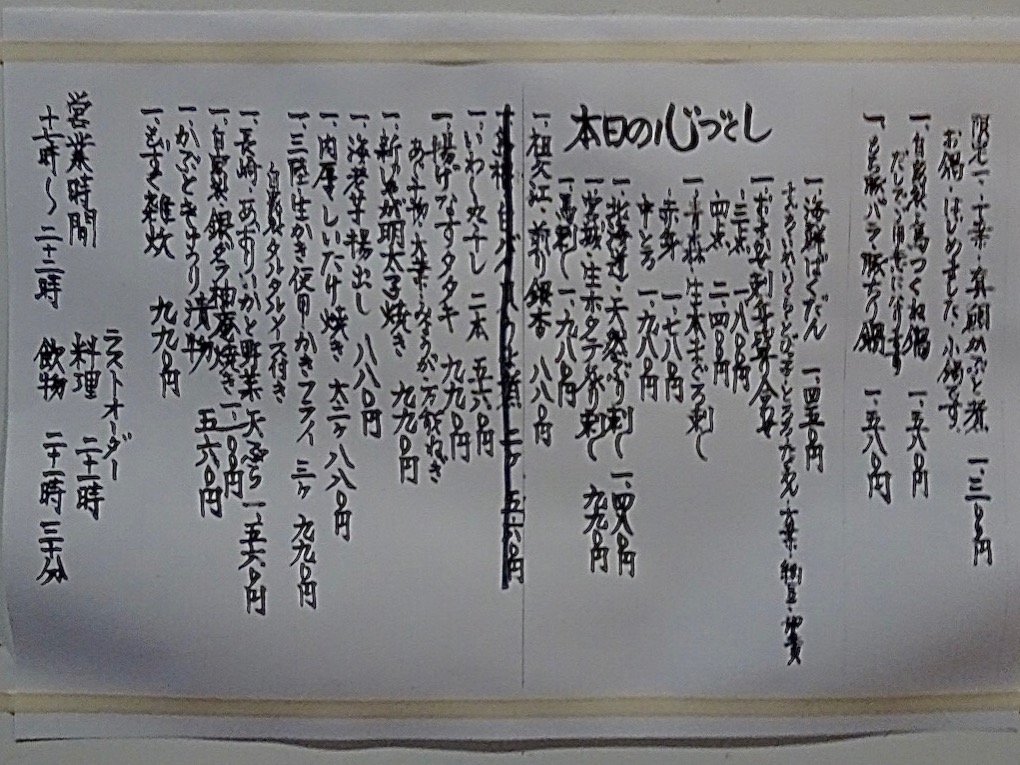 限定一、十葉・真鯛かぶと煮 一、三〇〇円
お鍋・はじめました、小鍋です。
一、自家製・鳥つくね鍋 一、五八〇円
だしで、雑炊になります
一、もち豚バラ 豚ちり鍋 一、五八〇円
本日の心づとし
一、海鮮ばくだん 一、四五〇円
一、おまかせ刺身盛り合せ
三点 一、八〇〇円
四点 二、四〇〇円
一、青森・生本まぐろ刺し
赤身 一、七八〇円
中とろ 一、九八〇円
一、北海道・天然ぶり刺し 一、四八〇円
一、宮城・生ホタテ貝刺し 九九〇円
一、馬刺し 一、九八〇円
一、祖父江・煎り銀杏 八八〇円
二ヶ 五六〇円
一、いわし丸干し 二本 五六〇円
一、揚げなすタタキ 九九〇円
あみ干物・大葉・みょうが・万能ねぎ
一、新じゃが明太子焼き 九九〇円
一、海老芋揚出し 八八〇円
一、肉厚しいたけ焼き 大二ヶ 八八〇円
一、三陸生かき使用・かきフライ 三ヶ 九九〇円
自家製タルタルソース付き
一、長崎・あおりいかと野菜天ぷら 一、五六〇円
一、自家製・銀ダラ柚庵焼き 一、二〇〇円
一、かぶときゅうり漬物 五六〇円
一、もずく雑炊 九九〇円
営業時間
十七時〜二十二時
ラストオーダー
料理 二十一時
飲物 二十一時三十分